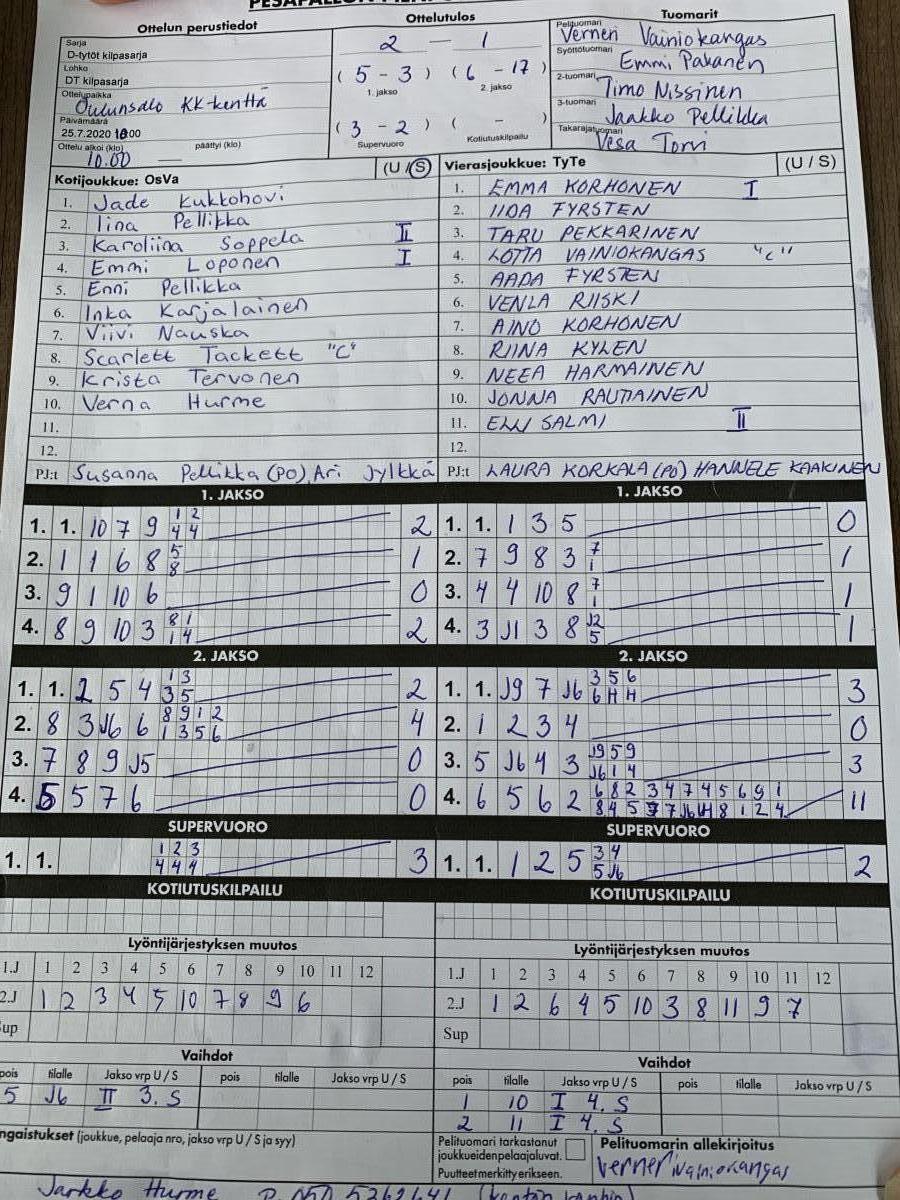 Ottelun perustiedot Ottelutulos Tuomarit
Sarja
D-tytöt kilpasarja
Lohko
DT kilpasarja
Ottelupaikka
Oulunsalo KK-kenttä
Päivämäärä
25.7.2020 10:00
Ottelu alkoi (klo) päättyi (klo)
10.00
2 — 1
(5 - 3) (6 - 17)
1. jakso 2. jakso
(3 - 2) ( - )
Supervuoro Kotiutuskilpailu
Pelituomari
Verneri Vainiokangas
Syöttötuomari
Emmi Pakanen
2-tuomari
Timo Nissinen
3-tuomari
Jaakko Pellikka
Takarajatuomari
Vesa Torvi
Kotijoukkue: OsVa (U / S)
1. Jade Kukkohovi
2. Iina Pellikka
3. Karoliina Soppela II
4. Emmi Loponen I
5. Enni Pellikka
6. Inka Karjalainen
7. Viivi Nauska
8. Scarlett Tackett "C"
9. Krista Tervonen
10. Verna Hurme
11.
12.
PJ:t Susanna Pellikka (PO), Ari Jylkkä
Vierasjoukkue: TyTe (U / S)
1. EMMA KORHONEN I
2. IIDA FYRSTEN
3. TARU PEKKARINEN
4. LOTTA VAINIOKANGAS "C"
5. AADA FYRSTEN
6. VENLA RIISKI
7. AINO KORHONEN
8. RIINA KYLEN
9. NEEA HARMAINEN
10. JONNA RAUTIAINEN
11. ELLI SALMI II
12.
PJ:t LAURA KORKALA (PO) HANNELE KAAKINEN
1. JAKSO
1. 1. 10 7 9 1 2 2
4 4
2. 1 1 6 8 5 1
8
3. 9 1 10 6 0
4. 8 9 10 3 8 1 2
1 4
1. JAKSO
1. 1. 1 3 5 0
2. 7 9 8 3 7 1
1
3. 4 4 10 8 7 1
1
4. 3 J1 3 8 J2 1
5
2. JAKSO
1. 1. 2 5 4 1 3 2
3 5
2. 8 3 J6 6 8 9 1 2 4
1 3 5 6
3. 7 8 9 J5 0
4. 5 5 7 6 0
2. JAKSO
1. 1. J9 7 J6 3 5 6 3
6 H H
2. 1 2 3 4 0
3. 5 J6 4 3 J9 5 9 3
J6 1 4
4. 6 5 6 2 6 8 2 3 4 7 4 5 6 9 1 11
8 4 5 7 J6 8 1 2 4
SUPERVUORO
1. 1. 1 2 3 3
4 4 4
SUPERVUORO
1. 1. 1 2 5 3 4 2
5 J6
KOTIUTUSKILPAILU
KOTIUTUSKILPAILU
Lyöntijärjestyksen muutos
1.J 1 2 3 4 5 6 7 8 9 10 11 12
2.J 1 2 3 4 5 10 7 8 9 6
Sup
Lyöntijärjestyksen muutos
1.J 1 2 3 4 5 6 7 8 9 10 11 12
2.J 1 2 6 4 5 10 3 8 11 9 7
Sup
Vaihdot
pois tilalle Jakso vrp U / S pois tilalle Jakso vrp U / S
5 J6 II 3. S
Vaihdot
pois tilalle Jakso vrp U / S pois tilalle Jakso vrp U / S
1 10 I 4. S
2 11 I 4. S
ngaistukset (joukkue, pelaaja nro, jakso vrp U / S ja syy)
Pelituomari tarkastanut
joukkueiden pelaajaluvat.
Puutteet merkitty erikseen.
Pelituomarin allekirjoitus
Verneri Vainiokangas
Jarkko Hurme